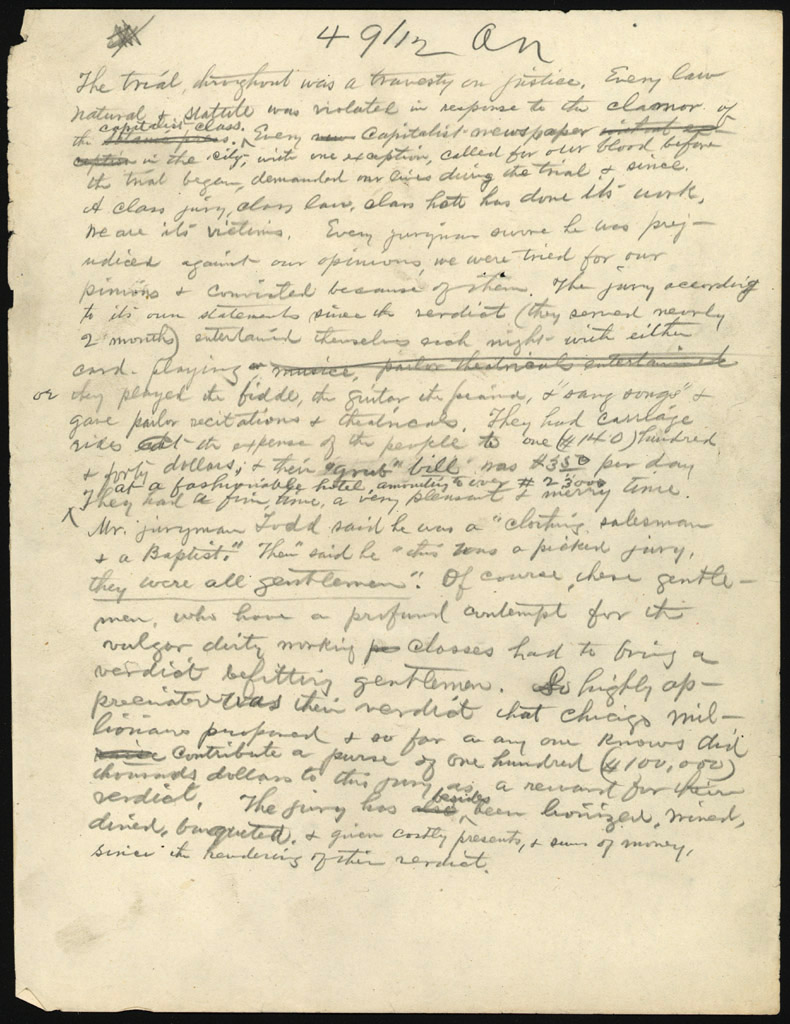 49/12 On
The trial, throughout was a travesty on justice. Every law
natural & statute was violated in response to the clamor of
the capitalist class. Every capitalist newspaper
in the city, with one exception, called for our blood before
the trial began, demanded our lives during the trial & since.
A class jury, class law, class hate has done its work,
we are its victims. Every juryman swore he was prej-
udiced against our opinions, we were tried for our
pinions & convicted because of them. The jury according
to its own statements since the verdict (they served nearly
2 months) entertained themselves each night with either
card-playing or musice, parlor theatricals entertained
or they played the fiddle, the guitar the piano, & "sang songs" &
gave parlor recitations & theatricals. They had carriage
rides at the expense of the people to one ($140) hundred
& forty dollars; & their "grub" bill was $3.50 per day
at a fashionable hotel, amounting to over $23000
They had a fine time, a very pleasant & merry time.
Mr. juryman Todd said he was a "clothing salesman
& a Baptist." Then said he "this was a picked jury,
they were all gentlemen". Of course, these gentle-
men, who have a profound contempt for the
vulgar dirty working classes had to bring a
verdict befitting gentlemen. So highly ap-
preciated was their verdict that Chicago mil-
lionaires proposed & so far as any one knows did
contribute a purse of one hundred ($100,000)
thousands dollars to this jury as a reward for their
verdict. The jury has besides been lionized, wined,
dined, banqueted, & given costly presents, & sums of money,
since the rendering of their verdict.